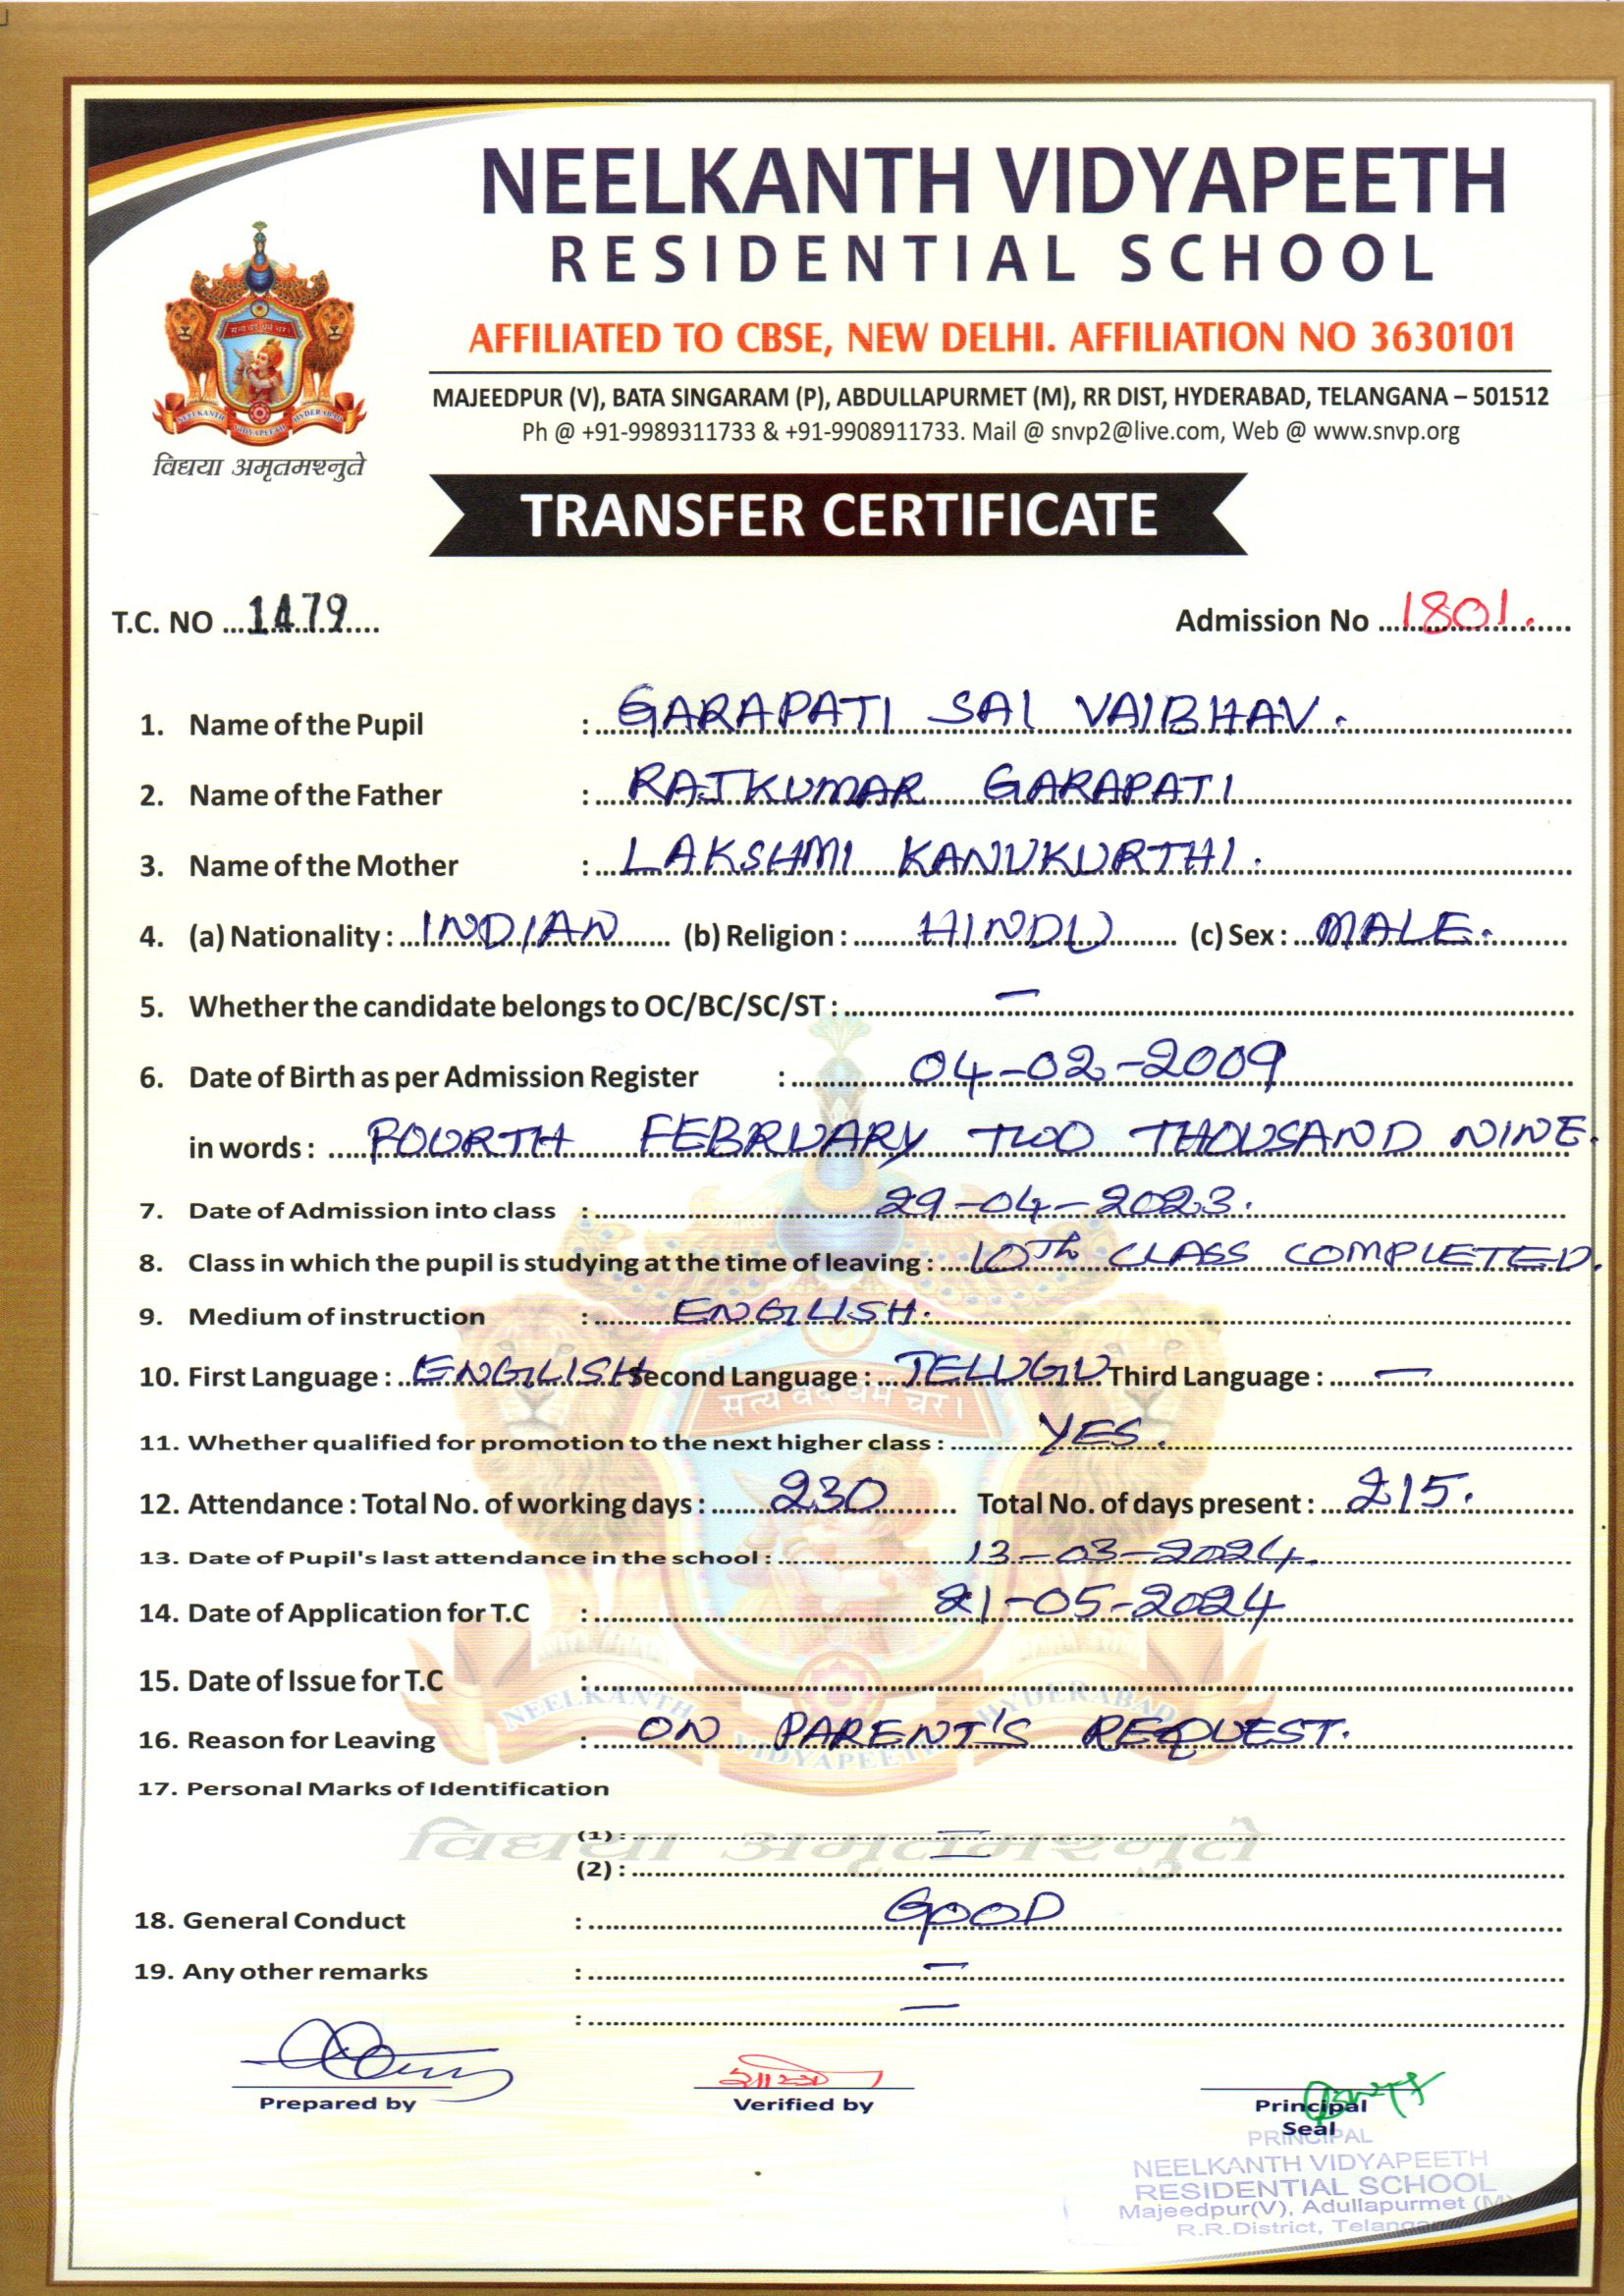 NEELKANTH VIDYAPEETH
RESIDENTIAL SCHOOL
AFFILIATED TO CBSE, NEW DELHI. AFFILIATION NO 3630101
MAJEEDPUR (V), BATA SINGARAM (P), ABDULLAPURMET (M), RR DIST, HYDERABAD, TELANGANA – 501512
Ph @ +91-9989311733 & +91-9908911733. Mail @ snvp2@live.com, Web @ www.snvp.org
सत्यं वद धर्मं चर।
NEELKANTH VIDYAPEETH HYDERABAD
विद्यया अमृतमश्नुते
TRANSFER CERTIFICATE
T.C. NO 1479 Admission No 1801.
1. Name of the Pupil : GARAPATI SAI VAIBHAV.
2. Name of the Father : RAJKUMAR GARAPATI
3. Name of the Mother : LAKSHMI KANUKURTHI.
4. (a) Nationality : INDIAN (b) Religion : HINDU (c) Sex : MALE.
5. Whether the candidate belongs to OC/BC/SC/ST : –
6. Date of Birth as per Admission Register : 04-02-2009
in words : FOURTH FEBRUARY TWO THOUSAND NINE.
7. Date of Admission into class : 29-04-2023.
8. Class in which the pupil is studying at the time of leaving : 10Th CLASS COMPLETED.
9. Medium of instruction : ENGLISH.
10. First Language : ENGLISH Second Language : TELUGU Third Language : –
सत्यं वद धर्मं चर।
11. Whether qualified for promotion to the next higher class : YES.
12. Attendance : Total No. of working days : 230 Total No. of days present : 215.
13. Date of Pupil's last attendance in the school : 13-03-2024.
14. Date of Application for T.C : 21-05-2024
15. Date of Issue for T.C :
NEELKANTH VIDYAPEETH HYDERABAD
16. Reason for Leaving : ON PARENT'S REQUEST.
17. Personal Marks of Identification
(1) : –
विद्यया अमृतमश्नुते
(2) : –
18. General Conduct : GOOD
19. Any other remarks : –
: –
Prepared by Verified by Principal
Seal
PRINCIPAL
NEELKANTH VIDYAPEETH
RESIDENTIAL SCHOOL
Majeedpur(V), Adullapurmet (M)
R.R.District, Telangana